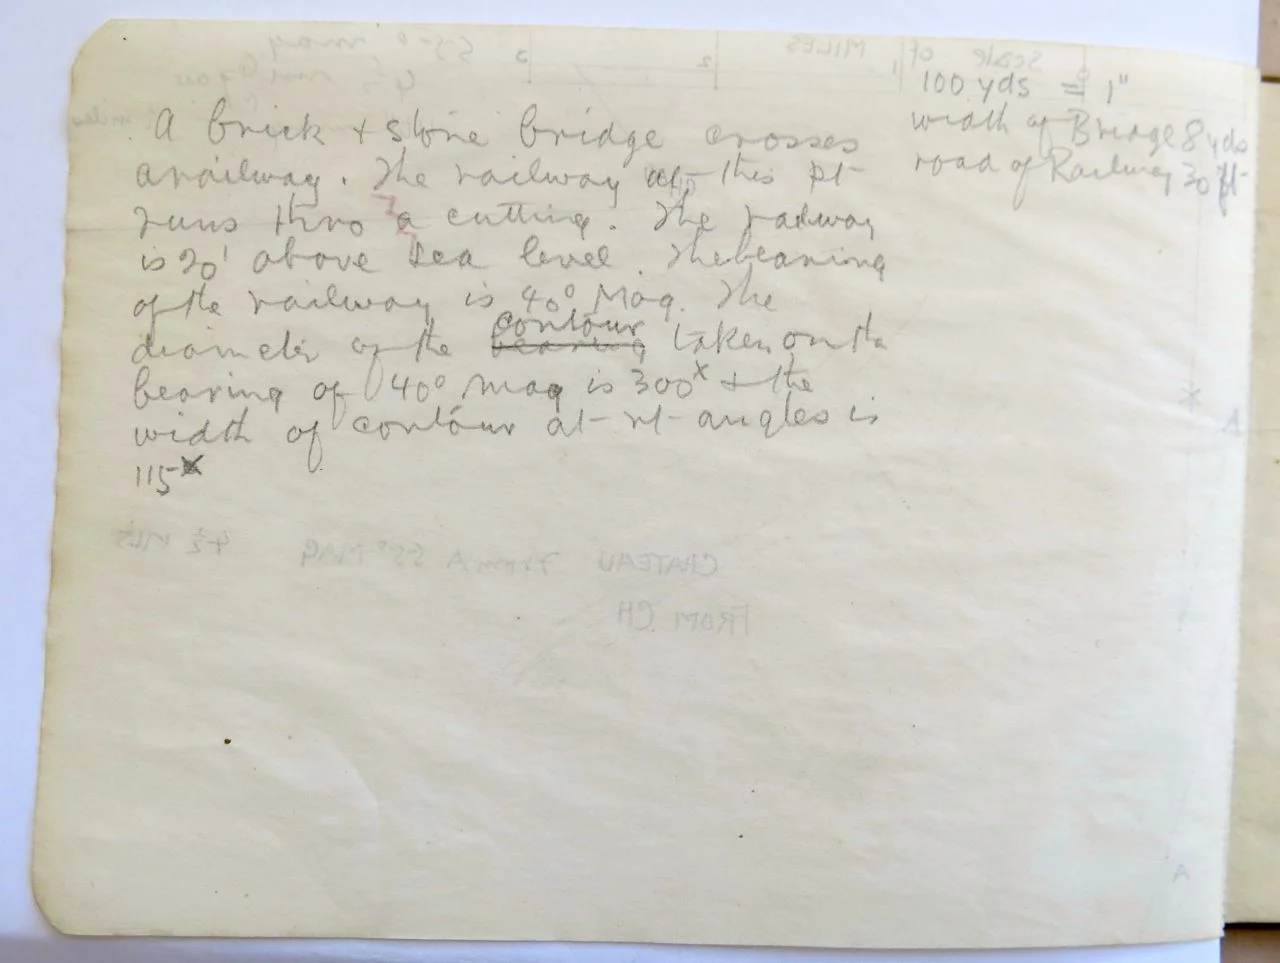 A brick + stone bridge crosses
a railway. The railway at this pt
runs thro a cutting. The railway
is 20' above sea level. The bearing
of the railway is 40° Mag. The
diameter of the contour taken on the
bearing of 40° mag is 300x + the
width of contour at rt angles is
115x
100 yds = 1"
width of Bridge 8 yds
road of Railway 30 ft
Scale of MILES
0 1 2 3
CHATEAU From A 55° MAG 4½ MLS
FROM CH
A
A